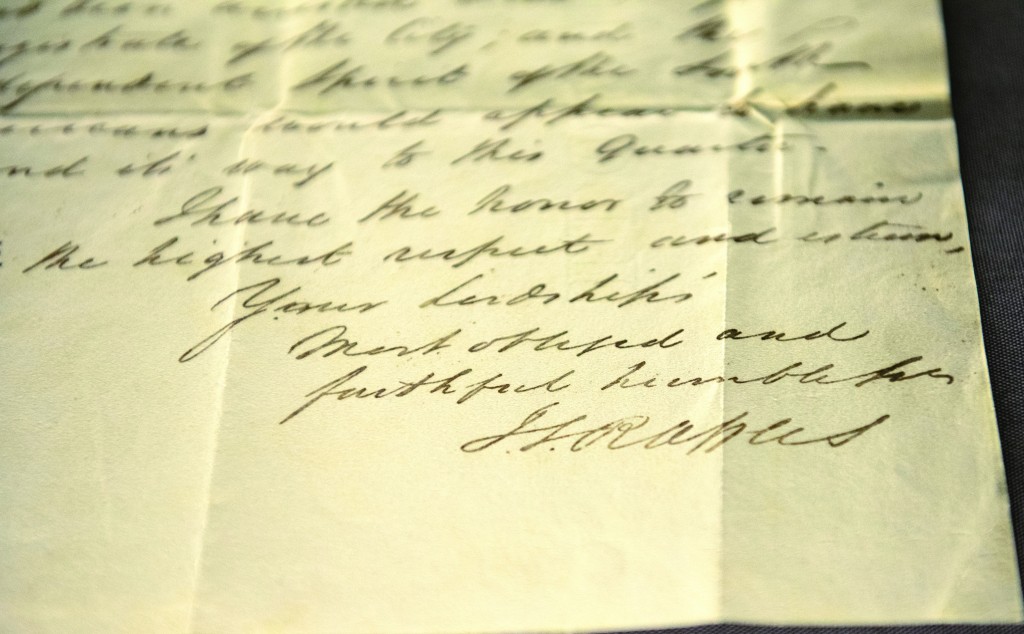 been
gistrate of the City; and the
dependent Spirit of the South
ericans would appear to have
nd it's way to this Quarter.
I have the honor to remain
the highest respect and esteem,
Your Lordship's
Most obliged and
faithful humble Ser
T.S. Raffles